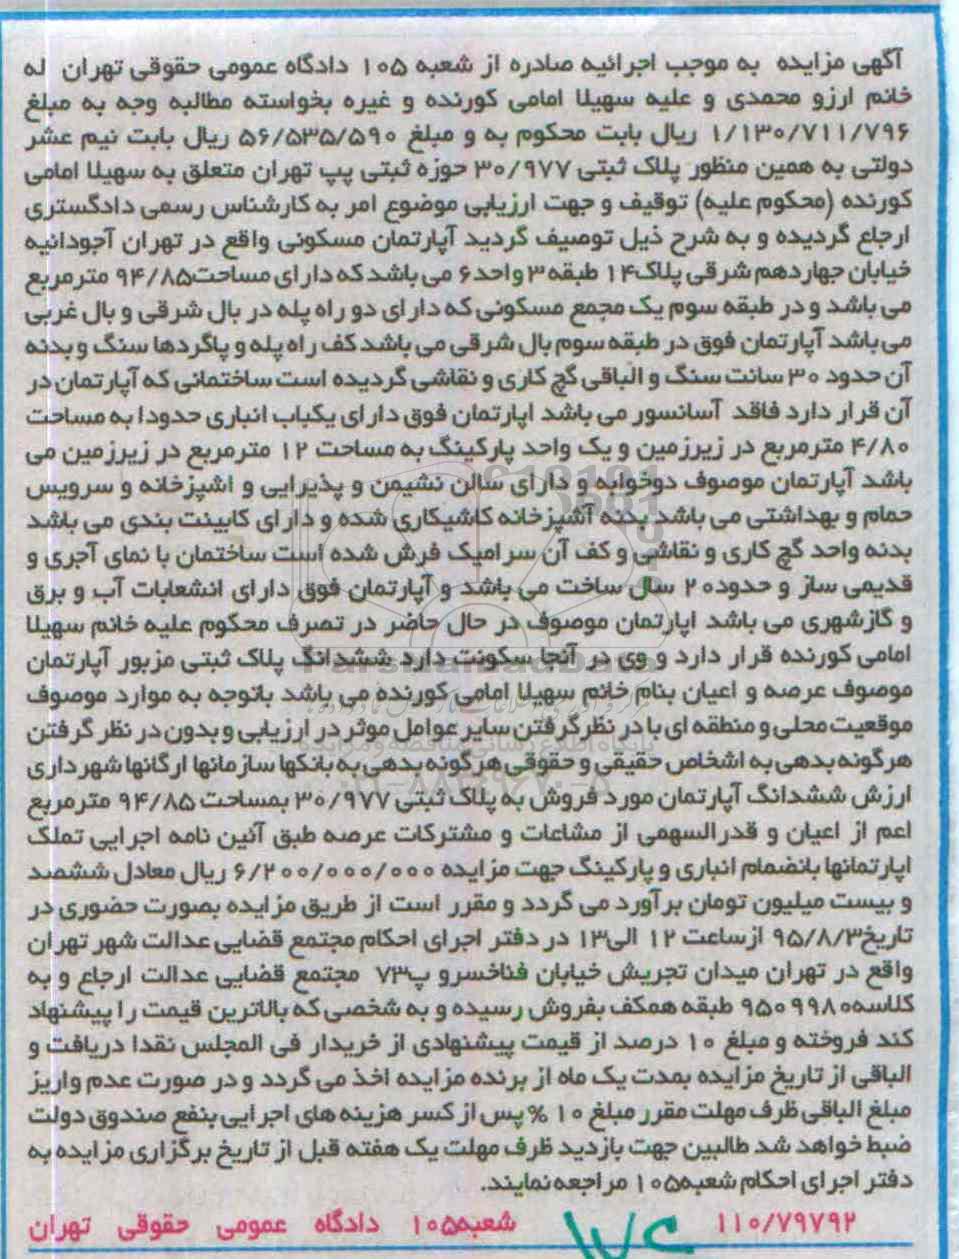 آگهی مزایده به موجب اجرائیه صادره از شعبه ۱۰۵ دادگاه عمومی حقوقی تهران له
خانم ارزو محمدی و علیه سهیلا امامی کورنده و غیره بخواسته مطالبه وجه به مبلغ
۱/۱۳۰/۷۱۱/۷۹۶ ریال بابت محکوم به و مبلغ ۵۶/۵۳۵/۵۹۰ ریال بابت نیم عشر
دولتی به همین منظور پلاک ثبتی ۳۰/۹۷۷ حوزه ثبتی پپ تهران متعلق به سهیلا امامی
کورنده (محکوم علیه) توقیف و جهت ارزیابی موضوع امر به کارشناس رسمی دادگستری
ارجاع گردیده و به شرح ذیل توصیف گردید آپارتمان مسکونی واقع در تهران آجودانیه
خیابان چهاردهم شرقی پلاک۱۴ طبقه۳ واحد۶ می باشد که دارای مساحت۹۴/۸۵ مترمربع
می باشد و در طبقه سوم یک مجمع مسکونی که دارای دو راه پله در بال شرقی و بال غربی
می باشد آپارتمان فوق در طبقه سوم بال شرقی می باشد کف راه پله و پاگردها سنگ و بدنه
آن حدود ۳۰ سانت سنگ و الباقی گچ کاری و نقاشی گردیده است ساختمانی که آپارتمان در
آن قرار دارد فاقد آسانسور می باشد اپارتمان فوق دارای یکباب انباری حدودا به مساحت
۴/۸۰ مترمربع در زیرزمین و یک واحد پارکینگ به مساحت ۱۲ مترمربع در زیرزمین می
باشد آپارتمان موصوف دوخوابه و دارای سالن نشیمن و پذیرایی و اشپزخانه و سرویس
حمام و بهداشتی می باشد بدنه آشپزخانه کاشیکاری شده و دارای کابینت بندی می باشد
بدنه واحد گچ کاری و نقاشی و کف آن سرامیک فرش شده است ساختمان با نمای آجری و
قدیمی ساز و حدود۲۰ سال ساخت می باشد و آپارتمان فوق دارای انشعابات آب و برق
و گازشهری می باشد اپارتمان موصوف در حال حاضر در تصرف محکوم علیه خانم سهیلا
امامی کورنده قرار دارد و وی در آنجا سکونت دارد ششدانگ پلاک ثبتی مزبور آپارتمان
موصوف عرصه و اعیان بنام خانم سهیلا امامی کورنده می باشد باتوجه به موارد موصوف
موقعیت محلی و منطقه ای با در نظر گرفتن سایر عوامل موثر در ارزیابی و بدون در نظر گرفتن
هرگونه بدهی به اشخاص حقیقی و حقوقی هرگونه بدهی به بانکها سازمانها ارگانها شهرداری
ارزش ششدانگ آپارتمان مورد فروش به پلاک ثبتی ۳۰/۹۷۷ بمساحت ۹۴/۸۵ مترمربع
اعم از اعیان و قدرالسهمی از مشاعات و مشترکات عرصه طبق آئین نامه اجرایی تملک
اپارتمانها بانضمام انباری و پارکینگ جهت مزایده ۶/۲۰۰/۰۰۰/۰۰۰ ریال معادل ششصد
و بیست میلیون تومان برآورد می گردد و مقرر است از طریق مزایده بصورت حضوری در
تاریخ۹۵/۸/۳ ازساعت ۱۲ الی۱۳ در دفتر اجرای احکام مجتمع قضایی عدالت شهر تهران
واقع در تهران میدان تجریش خیابان فناخسرو پ۷۳ مجتمع قضایی عدالت ارجاع و به
کلاسه۹۵۰۹۹۸۰ طبقه همکف بفروش رسیده و به شخصی که بالاترین قیمت را پیشنهاد
کند فروخته و مبلغ ۱۰ درصد از قیمت پیشنهادی از خریدار فی المجلس نقدا دریافت و
الباقی از تاریخ مزایده بمدت یک ماه از برنده مزایده اخذ می گردد و در صورت عدم واریز
مبلغ الباقی ظرف مهلت مقرر مبلغ ۱۰ % پس از کسر هزینه های اجرایی بنفع صندوق دولت
ضبط خواهد شد طالبین جهت بازدید ظرف مهلت یک هفته قبل از تاریخ برگزاری مزایده به
دفتر اجرای احکام شعبه۱۰۵ مراجعه نمایند.
۱۱۰/۷۹۷۹۲ شعبه۱۰۵ دادگاه عمومی حقوقی تهران